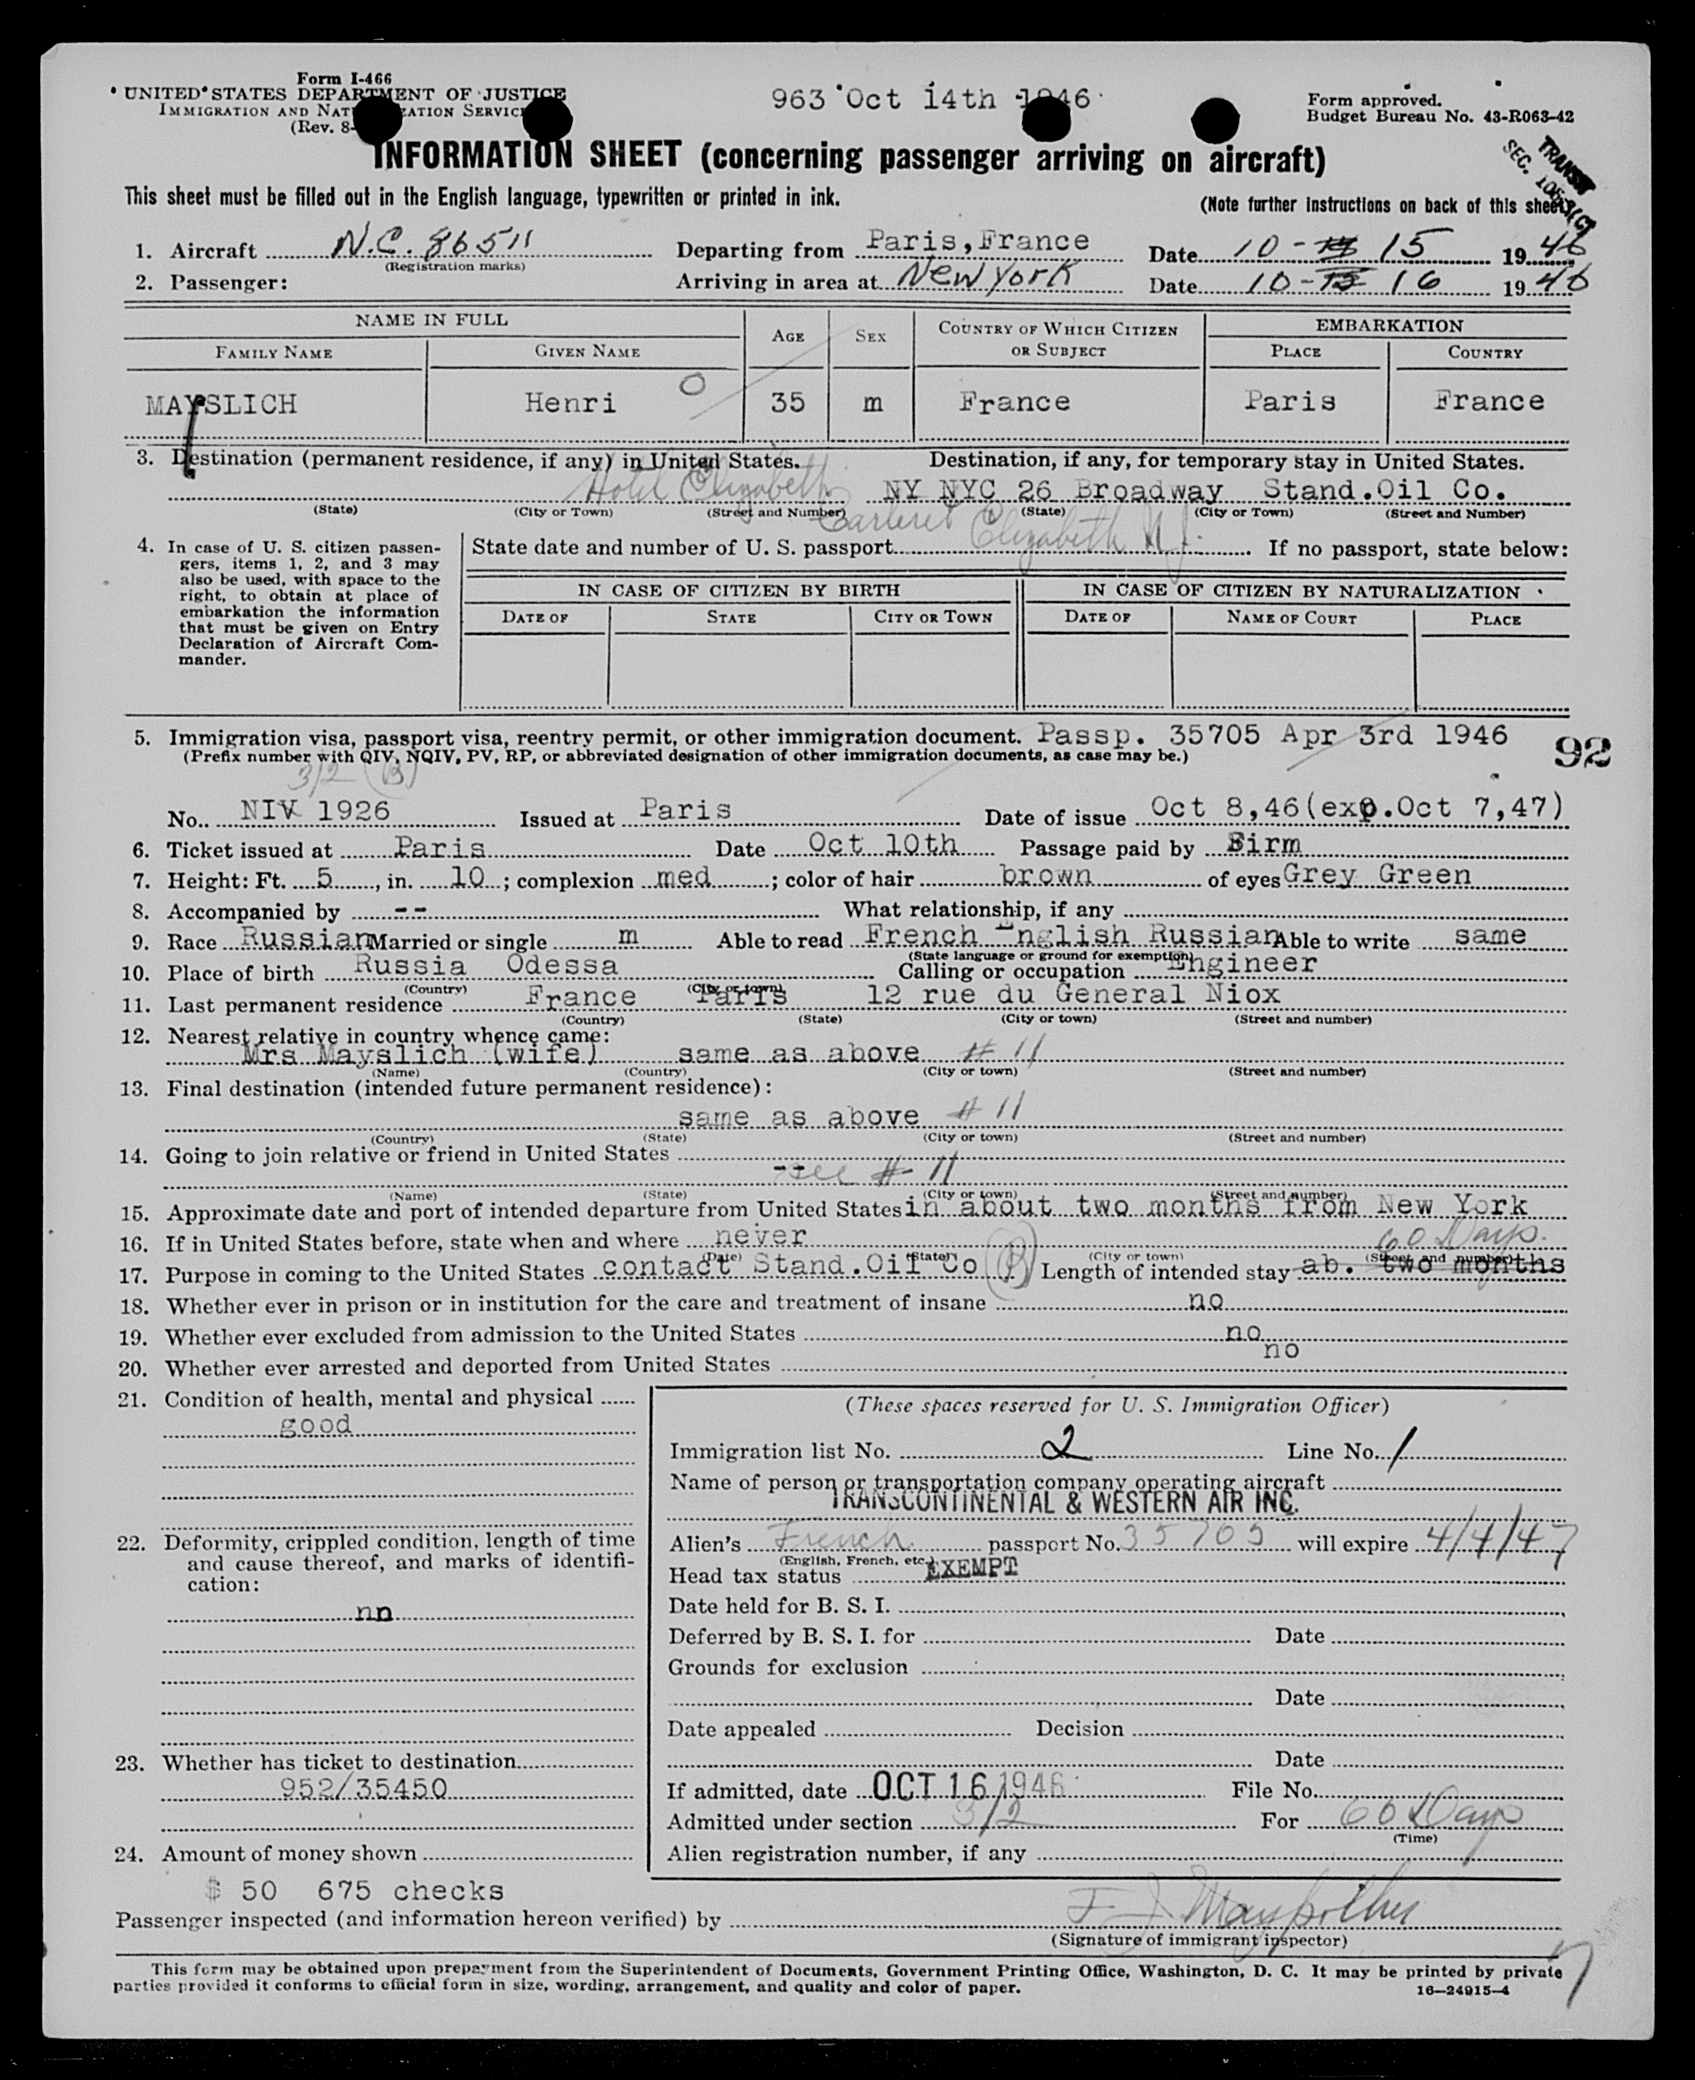 Form I-466
UNITED STATES DEPARTMENT OF JUSTICE
IMMIGRATION AND NATURALIZATION SERVICE
(Rev. 8-
963 Oct 14th 1946
Form approved.
Budget Bureau No. 43-R063-42
TRANSIT
SEC.
INFORMATION SHEET (concerning passenger arriving on aircraft)
This sheet must be filled out in the English language, typewritten or printed in ink.
(Note further instructions on back of this sheet.)
1. Aircraft N.C. 86511 Departing from Paris, France Date 10-15 1946
(Registration marks)
2. Passenger: Arriving in area at New York Date 10-16 1946
NAME IN FULL AGE SEX COUNTRY OF WHICH CITIZEN OR SUBJECT EMBARKATION
FAMILY NAME GIVEN NAME PLACE COUNTRY
MAYSLICH Henri O 35 m France Paris France
3. Destination (permanent residence, if any) in United States. Destination, if any, for temporary stay in United States.
Hotel Elizabeth NY NYC 26 Broadway Stand.Oil Co.
(State) (City or Town) (Street and Number) (State) (City or Town) (Street and Number)
Carteret Elizabeth N.J.
4. In case of U. S. citizen passengers, items 1, 2, and 3 may also be used, with space to the right, to obtain at place of embarkation the information that must be given on Entry Declaration of Aircraft Commander.
State date and number of U. S. passport If no passport, state below:
IN CASE OF CITIZEN BY BIRTH IN CASE OF CITIZEN BY NATURALIZATION
DATE OF STATE CITY OR TOWN DATE OF NAME OF COURT PLACE
5. Immigration visa, passport visa, reentry permit, or other immigration document. Passp. 35705 Apr 3rd 1946
(Prefix number with QIV, NQIV, PV, RP, or abbreviated designation of other immigration documents, as case may be.)
92
3/2 (B)
No. NIV 1926 Issued at Paris Date of issue Oct 8,46(exp.Oct 7,47)
6. Ticket issued at Paris Date Oct 10th Passage paid by Firm
7. Height: Ft. 5, in. 10; complexion med; color of hair brown of eyes Grey Green
8. Accompanied by -- What relationship, if any
9. Race Russian Married or single m Able to read French English Russian Able to write same
(State language or ground for exemption)
10. Place of birth Russia Odessa Calling or occupation Engineer
(Country) (City or town)
11. Last permanent residence France Paris 12 rue du General Niox
(Country) (State) (City or town) (Street and number)
12. Nearest relative in country whence came:
Mrs Mayslich (wife) same as above # 11
(Name) (Country) (City or town) (Street and number)
13. Final destination (intended future permanent residence):
same as above # 11
(Country) (State) (City or town) (Street and number)
14. Going to join relative or friend in United States
-- see # 11
(Name) (State) (City or town) (Street and number)
15. Approximate date and port of intended departure from United States in about two months from New York
16. If in United States before, state when and where never 60 Days.
(Date) (State) (City or town) (Street and number)
17. Purpose in coming to the United States contact Stand.Oil Co Length of intended stay ab. two months
18. Whether ever in prison or in institution for the care and treatment of insane no
19. Whether ever excluded from admission to the United States no
20. Whether ever arrested and deported from United States no
21. Condition of health, mental and physical
good
(These spaces reserved for U. S. Immigration Officer)
Immigration list No. 2 Line No. 1
Name of person or transportation company operating aircraft
TRANSCONTINENTAL & WESTERN AIR INC.
22. Deformity, crippled condition, length of time and cause thereof, and marks of identification:
nn
Alien's French passport No. 35705 will expire 4/4/47
(English, French, etc.)
Head tax status EXEMPT
Date held for B. S. I.
Deferred by B. S. I. for Date
Grounds for exclusion
Date
Date appealed Decision
Date
23. Whether has ticket to destination
952/35450
If admitted, date OCT 16 1946 File No.
Admitted under section 3/2 For 60 Days
(Time)
Alien registration number, if any
24. Amount of money shown
$ 50 675 checks
Passenger inspected (and information hereon verified) by
(Signature of immigrant inspector)
This form may be obtained upon prepayment from the Superintendent of Documents, Government Printing Office, Washington, D. C. It may be printed by private
parties provided it conforms to official form in size, wording, arrangement, and quality and color of paper.
16—24915-4